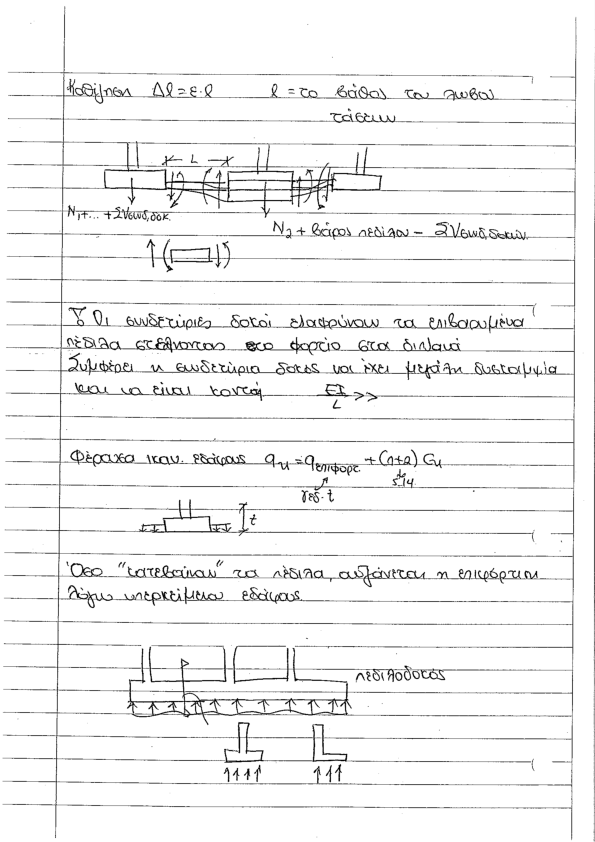 Καθίζηση Δl = ε·l l = το βάθος του λωβού
τάσεων
L
N₁+... + ΣVσυνδ.δοκ.
N₂ + βάρος πεδίλου − ΣVσυνδ.δοκών
Οι συνδετήριες δοκοί ελαφρύνουν τα επιβαρυμένα
πέδιλα στέλνοντας το φορτίο στα διπλανά
Συμφέρει η συνδετήρια δοκός να έχει μεγάλη δυσκαμψία
και να είναι κοντή EI/L >>
Φέρουσα ικαν. εδάφους qu = qεπιφορτ. + (π+2) Cu
γεδ·t 5.14
t
Όσο "κατεβαίνουν" τα πέδιλα, αυξάνεται η επιφόρτιση
λόγω υπερκείμενου εδάφους.
πεδιλοδοκός